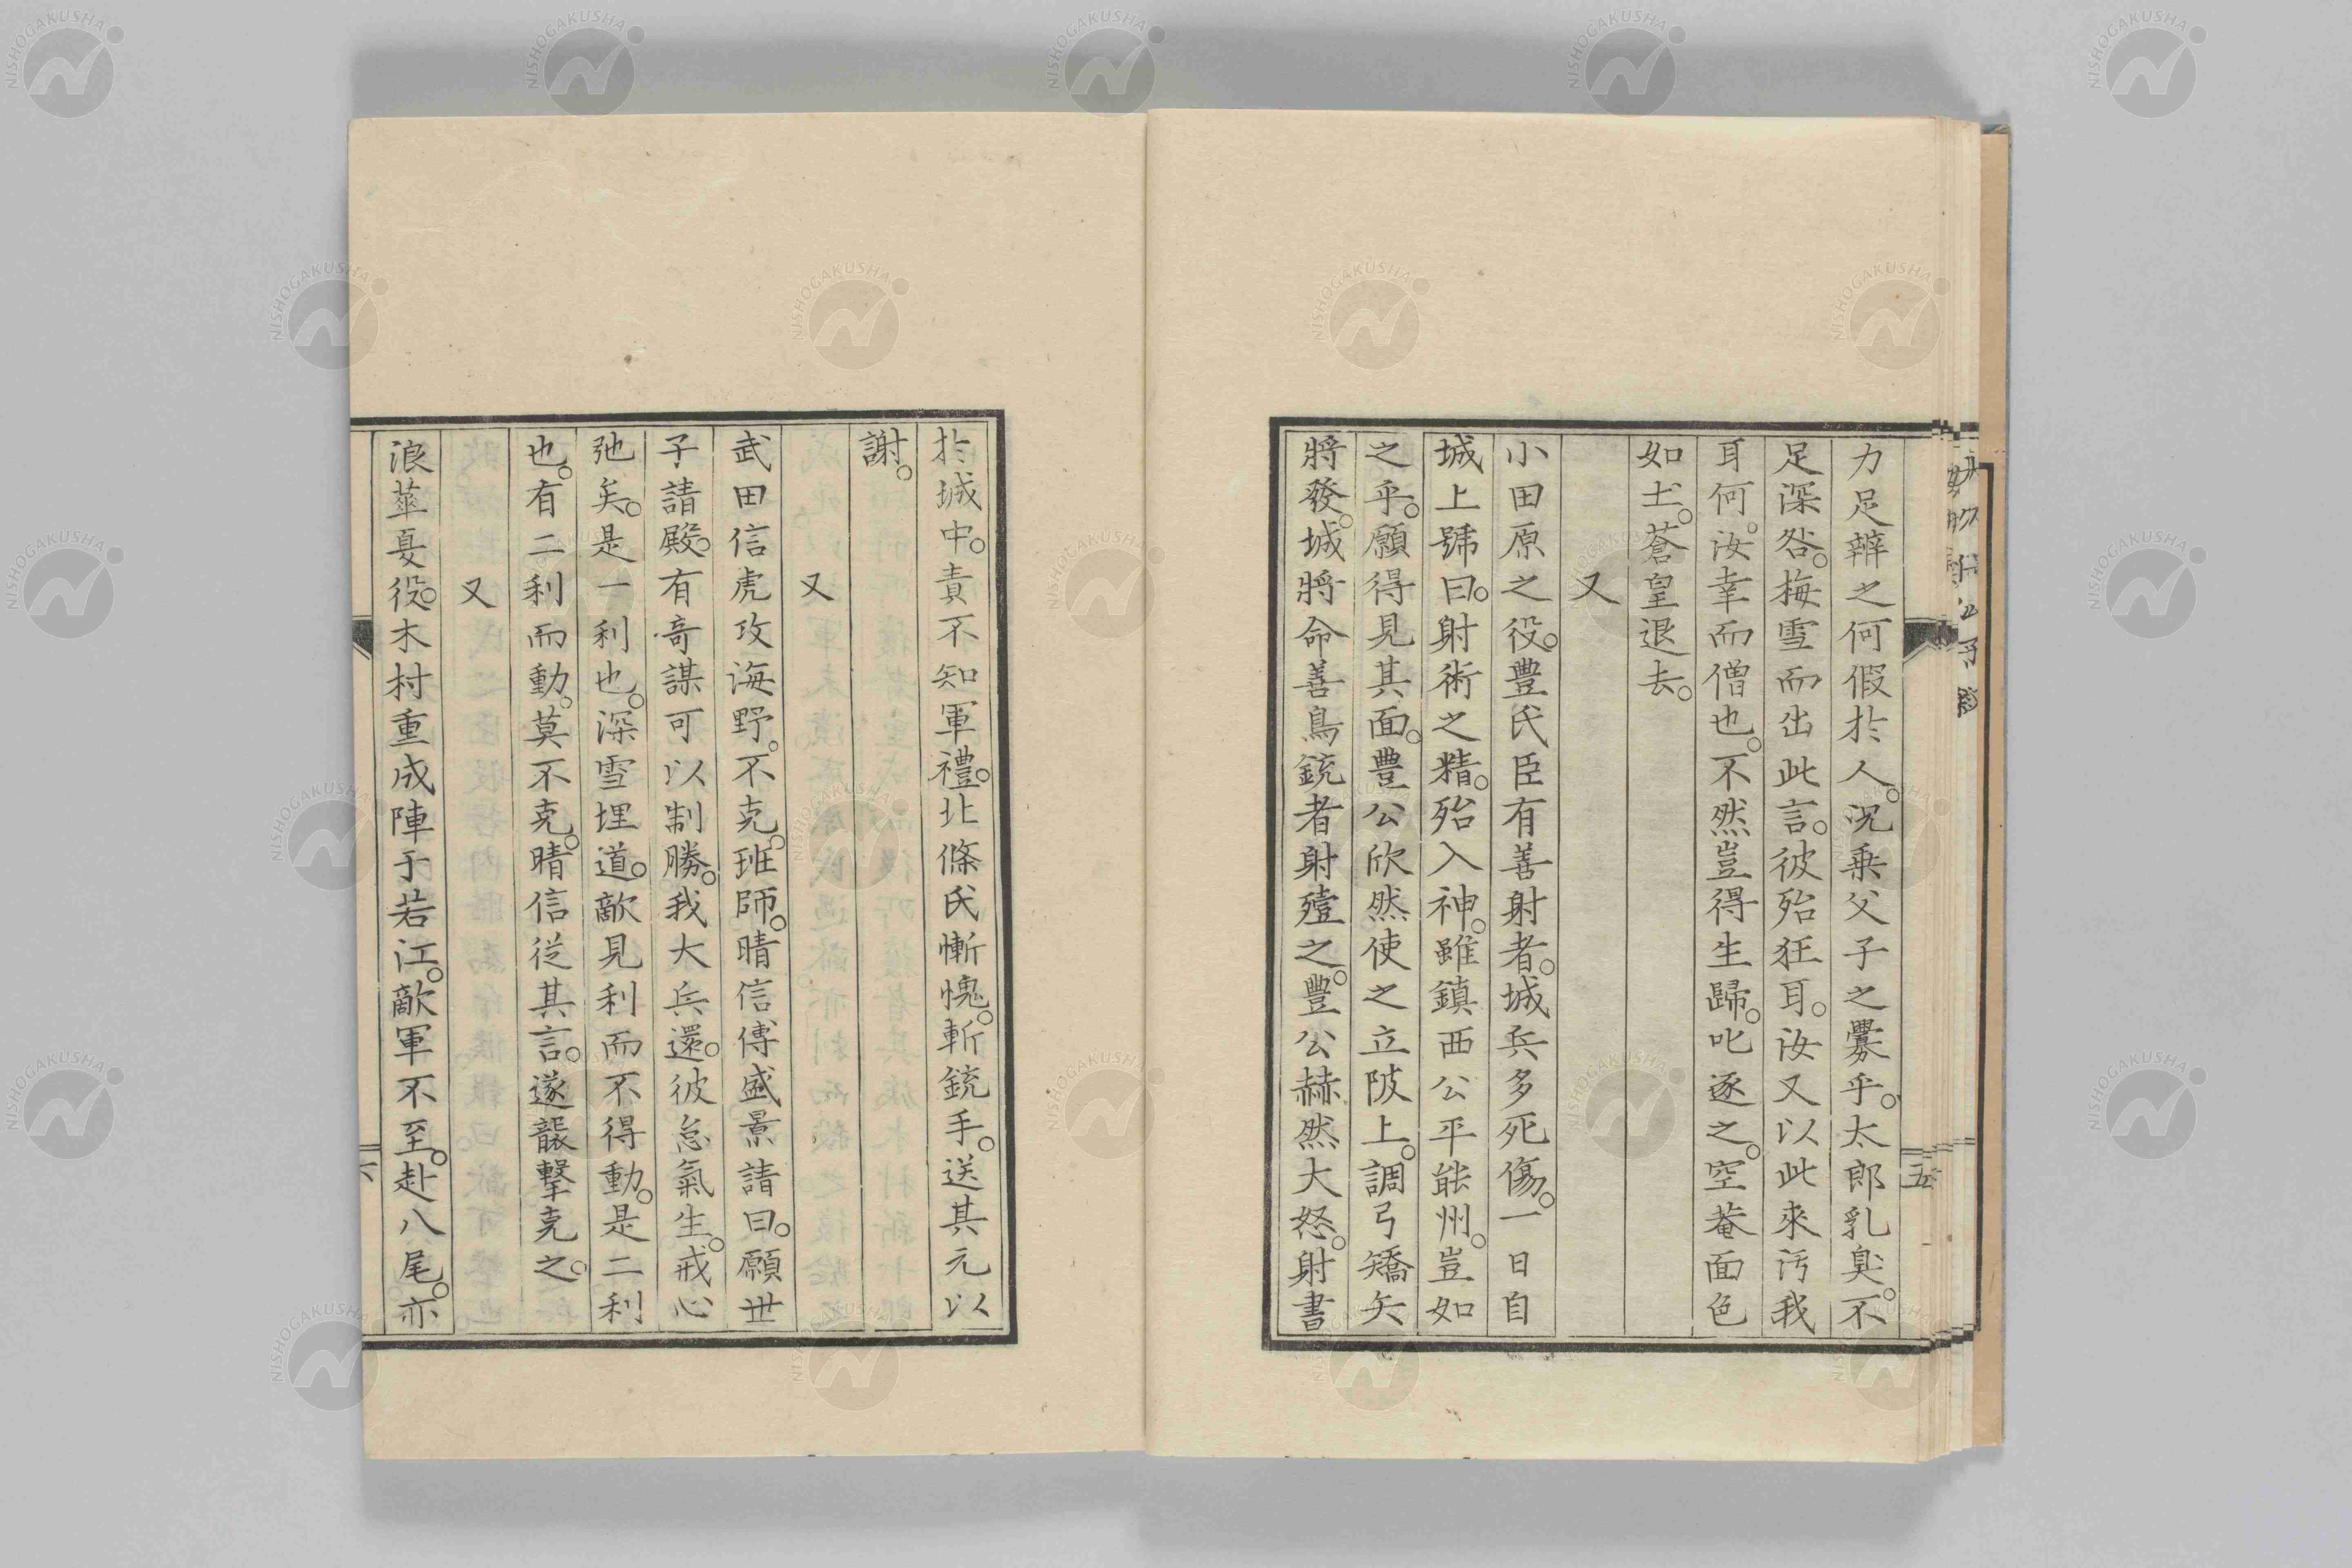 力足辨之何假於人。況乗父子之釁乎。太郎乳臭。不
足深咎。梅雪而出此言。彼殆狂耳。汝又以此來汚我
耳何。汝幸而僧也。不然豈得生歸。叱逐之。空菴面色
如土。蒼皇退去。
又
小田原之役。豐氏臣有善射者。城兵多死傷。一日自
城上號曰。射術之精。殆入神。雖鎮西公平能州。豈如
之乎。願得見其面。豊公欣然使之立陂上。調弓矯矢
將發。城將命善鳥銃者射殪之。豐公赫然大怒。射書
五
於城中。責不知軍禮。北條氏慚愧。斬銃手。送其元以
謝。
又
武田信虎攻海野。不克。班師。晴信傅盛景請曰。願世
子請殿。有奇謀可以制勝。我大兵還。彼怠氣生。戒心
弛矣。是一利也。深雪埋道。敵見利而不得動。是二利
也。有二利而動。莫不克。晴信從其言。遂襲擊克之。
又
浪華夏役。木村重成陣于若江。敵軍不至。赴八尾。亦
六
NISHOGAKUSHA